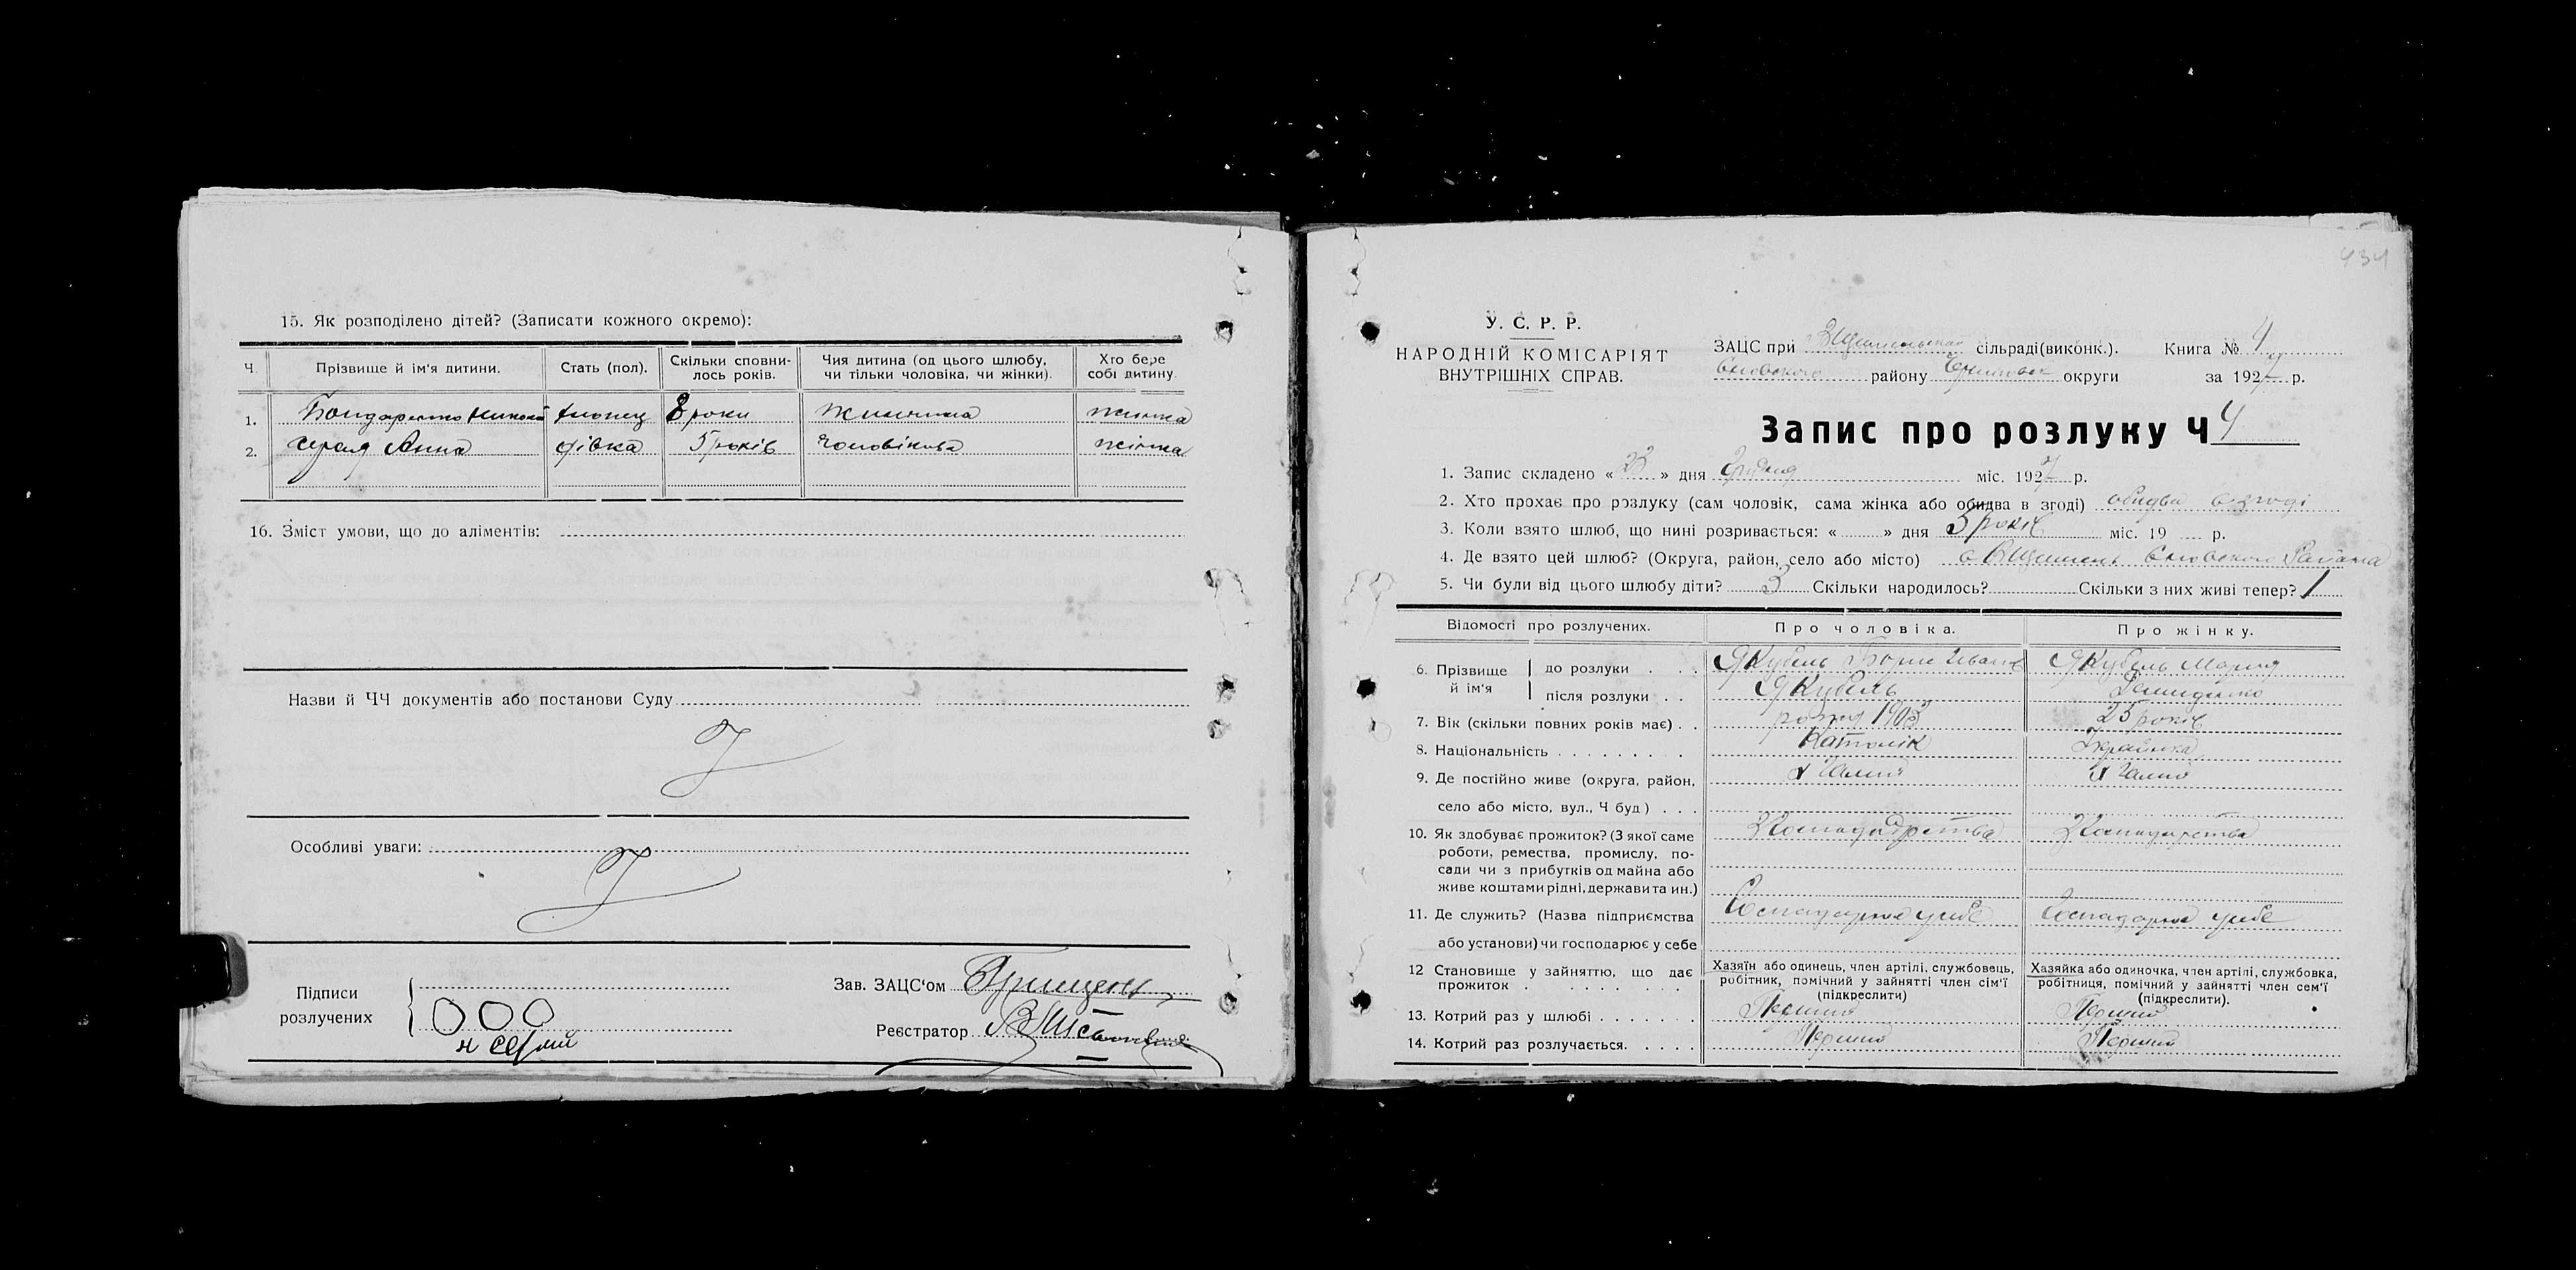 15. Як розподілено дітей? (Записати кожного окремо):
Ч. Прізвище й ім'я дитини. Стать (пол). Скільки сповни-лось років. Чия дитина (од цього шлюбу, чи тільки чоловіка, чи жінки). Хто бере собі дитину.
1. Бондаренко хлопец 8 роки жіночина жінка
2. Анна дівка 5 років чоловікова жінка
16. Зміст умови, що до аліментів:
Назви й ЧЧ документів або постанови Суду
Особливі уваги:
Підписи розлучених
Зав. ЗАЦС'ом
Реєстратор
434
У. С. Р. Р.
НАРОДНІЙ КОМІСАРІЯТ
ВНУТРІШНІХ СПРАВ.
ЗАЦС при сільраді(виконк.). Книга № 4
Сновского району округи за 1927 р.
Запис про розлуку Ч 4
1. Запис складено « 23 » дня грудня міс. 1927 р.
2. Хто прохає про розлуку (сам чоловік, сама жінка або обидва в згоді) обидва в згоді
3. Коли взято шлюб, що нині розривається: « » дня 5 років міс. 19 р.
4. Де взято цей шлюб? (Округа, район, село або місто) Сновского Района
5. Чи були від цього шлюбу діти? 3 Скільки народилось? Скільки з них живі тепер? 1
Відомості про розлучених. Про чоловіка. Про жінку.
6. Прізвище й ім'я до розлуки Якубель Борис Іванов Якубель Мария
після розлуки Якубель Демиденко
7. Вік (скільки повних років має) 1903 25 років
8. Національність Католік Українка
9. Де постійно живе (округа, район,
село або місто, вул., Ч буд)
10. Як здобуває прожиток? (З якої саме З господарства З господарства
роботи, ремества, промислу, по-
сади чи з прибутків од майна або
живе коштами рідні, держави та ин.)
11. Де служить? (Назва підприємства Господарює у себе Господарює у себе
або установи) чи господарює у себе
12 Становище у зайняттю, що дає прожиток Хазяїн або одинець, член артілі, службовець, робітник, помічний у зайнятті член сім'ї (підкреслити) Хазяйка або одиночка, член артілі, службовка, робітниця, помічний у зайнятті член сем'ї (підкреслити).
13. Котрий раз у шлюбі Перший Перший
14. Котрий раз розлучається. Перший Перший